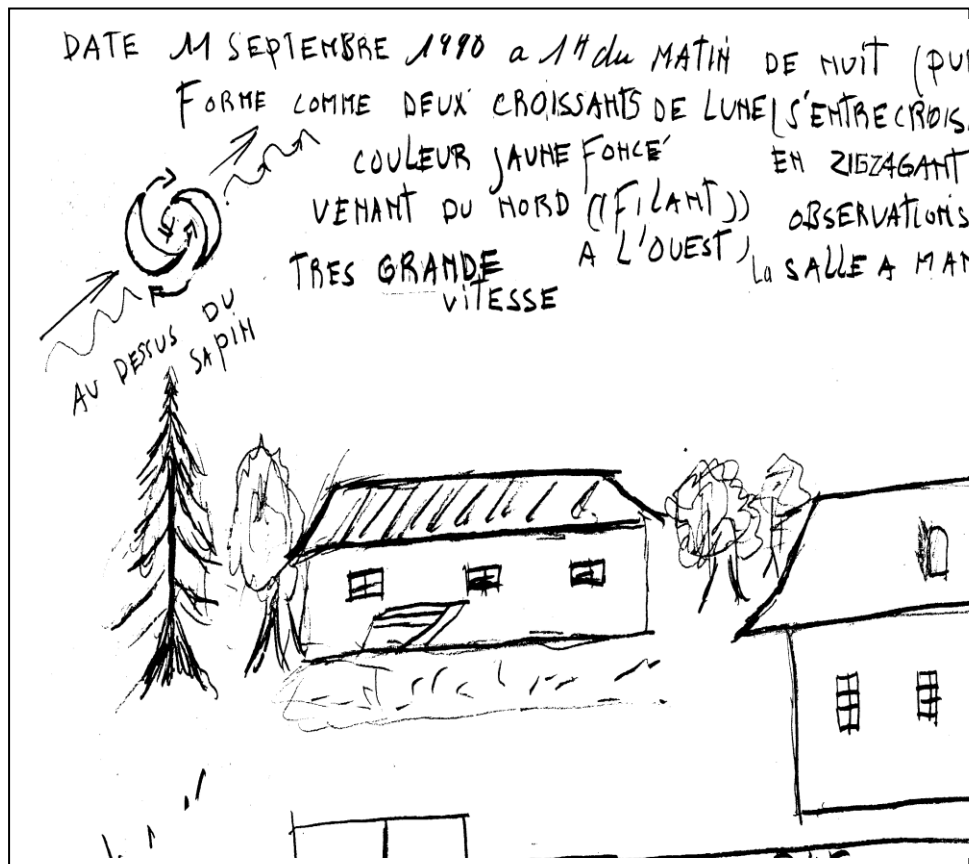 DATE 11 SEPTEMBRE 1990 a 1H du MATIN DE NUIT
FORME COMME DEUX CROISSANTS DE LUNE S'ENTRECROIS
COULEUR JAUNE FONCÉ EN ZIGZAGANT
VENANT DU NORD ((FILANT)) OBSERVATIONS
TRES GRANDE VITESSE A L'OUEST) la SALLE A MAN
AU DESSUS DU SAPIN